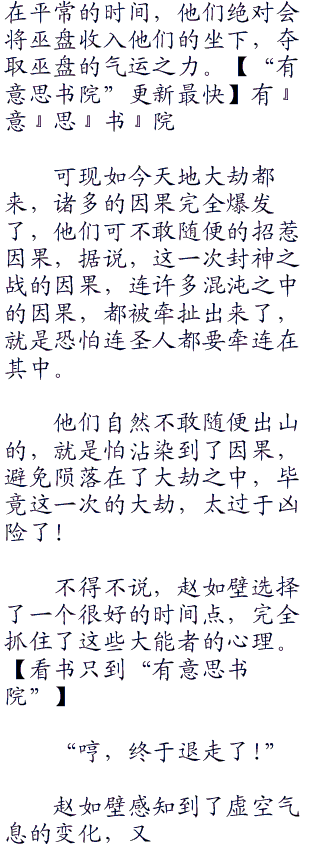 在平常的时间，他们绝对会
将巫盘收入他们的坐下，夺
取巫盘的气运之力。【“有
意思书院”更新最快】有』
意』思』书』院
可现如今天地大劫都
来，诸多的因果完全爆发
了，他们可不敢随便的招惹
因果，据说，这一次封神之
战的因果，连许多混沌之中
的因果，都被牵扯出来了，
就是恐怕连圣人都要牵连在
其中。
他们自然不敢随便出山
的，就是怕沾染到了因果，
避免陨落在了大劫之中，毕
竟这一次的大劫，太过于凶
险了！
不得不说，赵如壁选择
了一个很好的时间点，完全
抓住了这些大能者的心理。
【看书只到“有意思书
院”】
“哼，终于退走了！”
赵如壁感知到了虚空气
息的变化，又